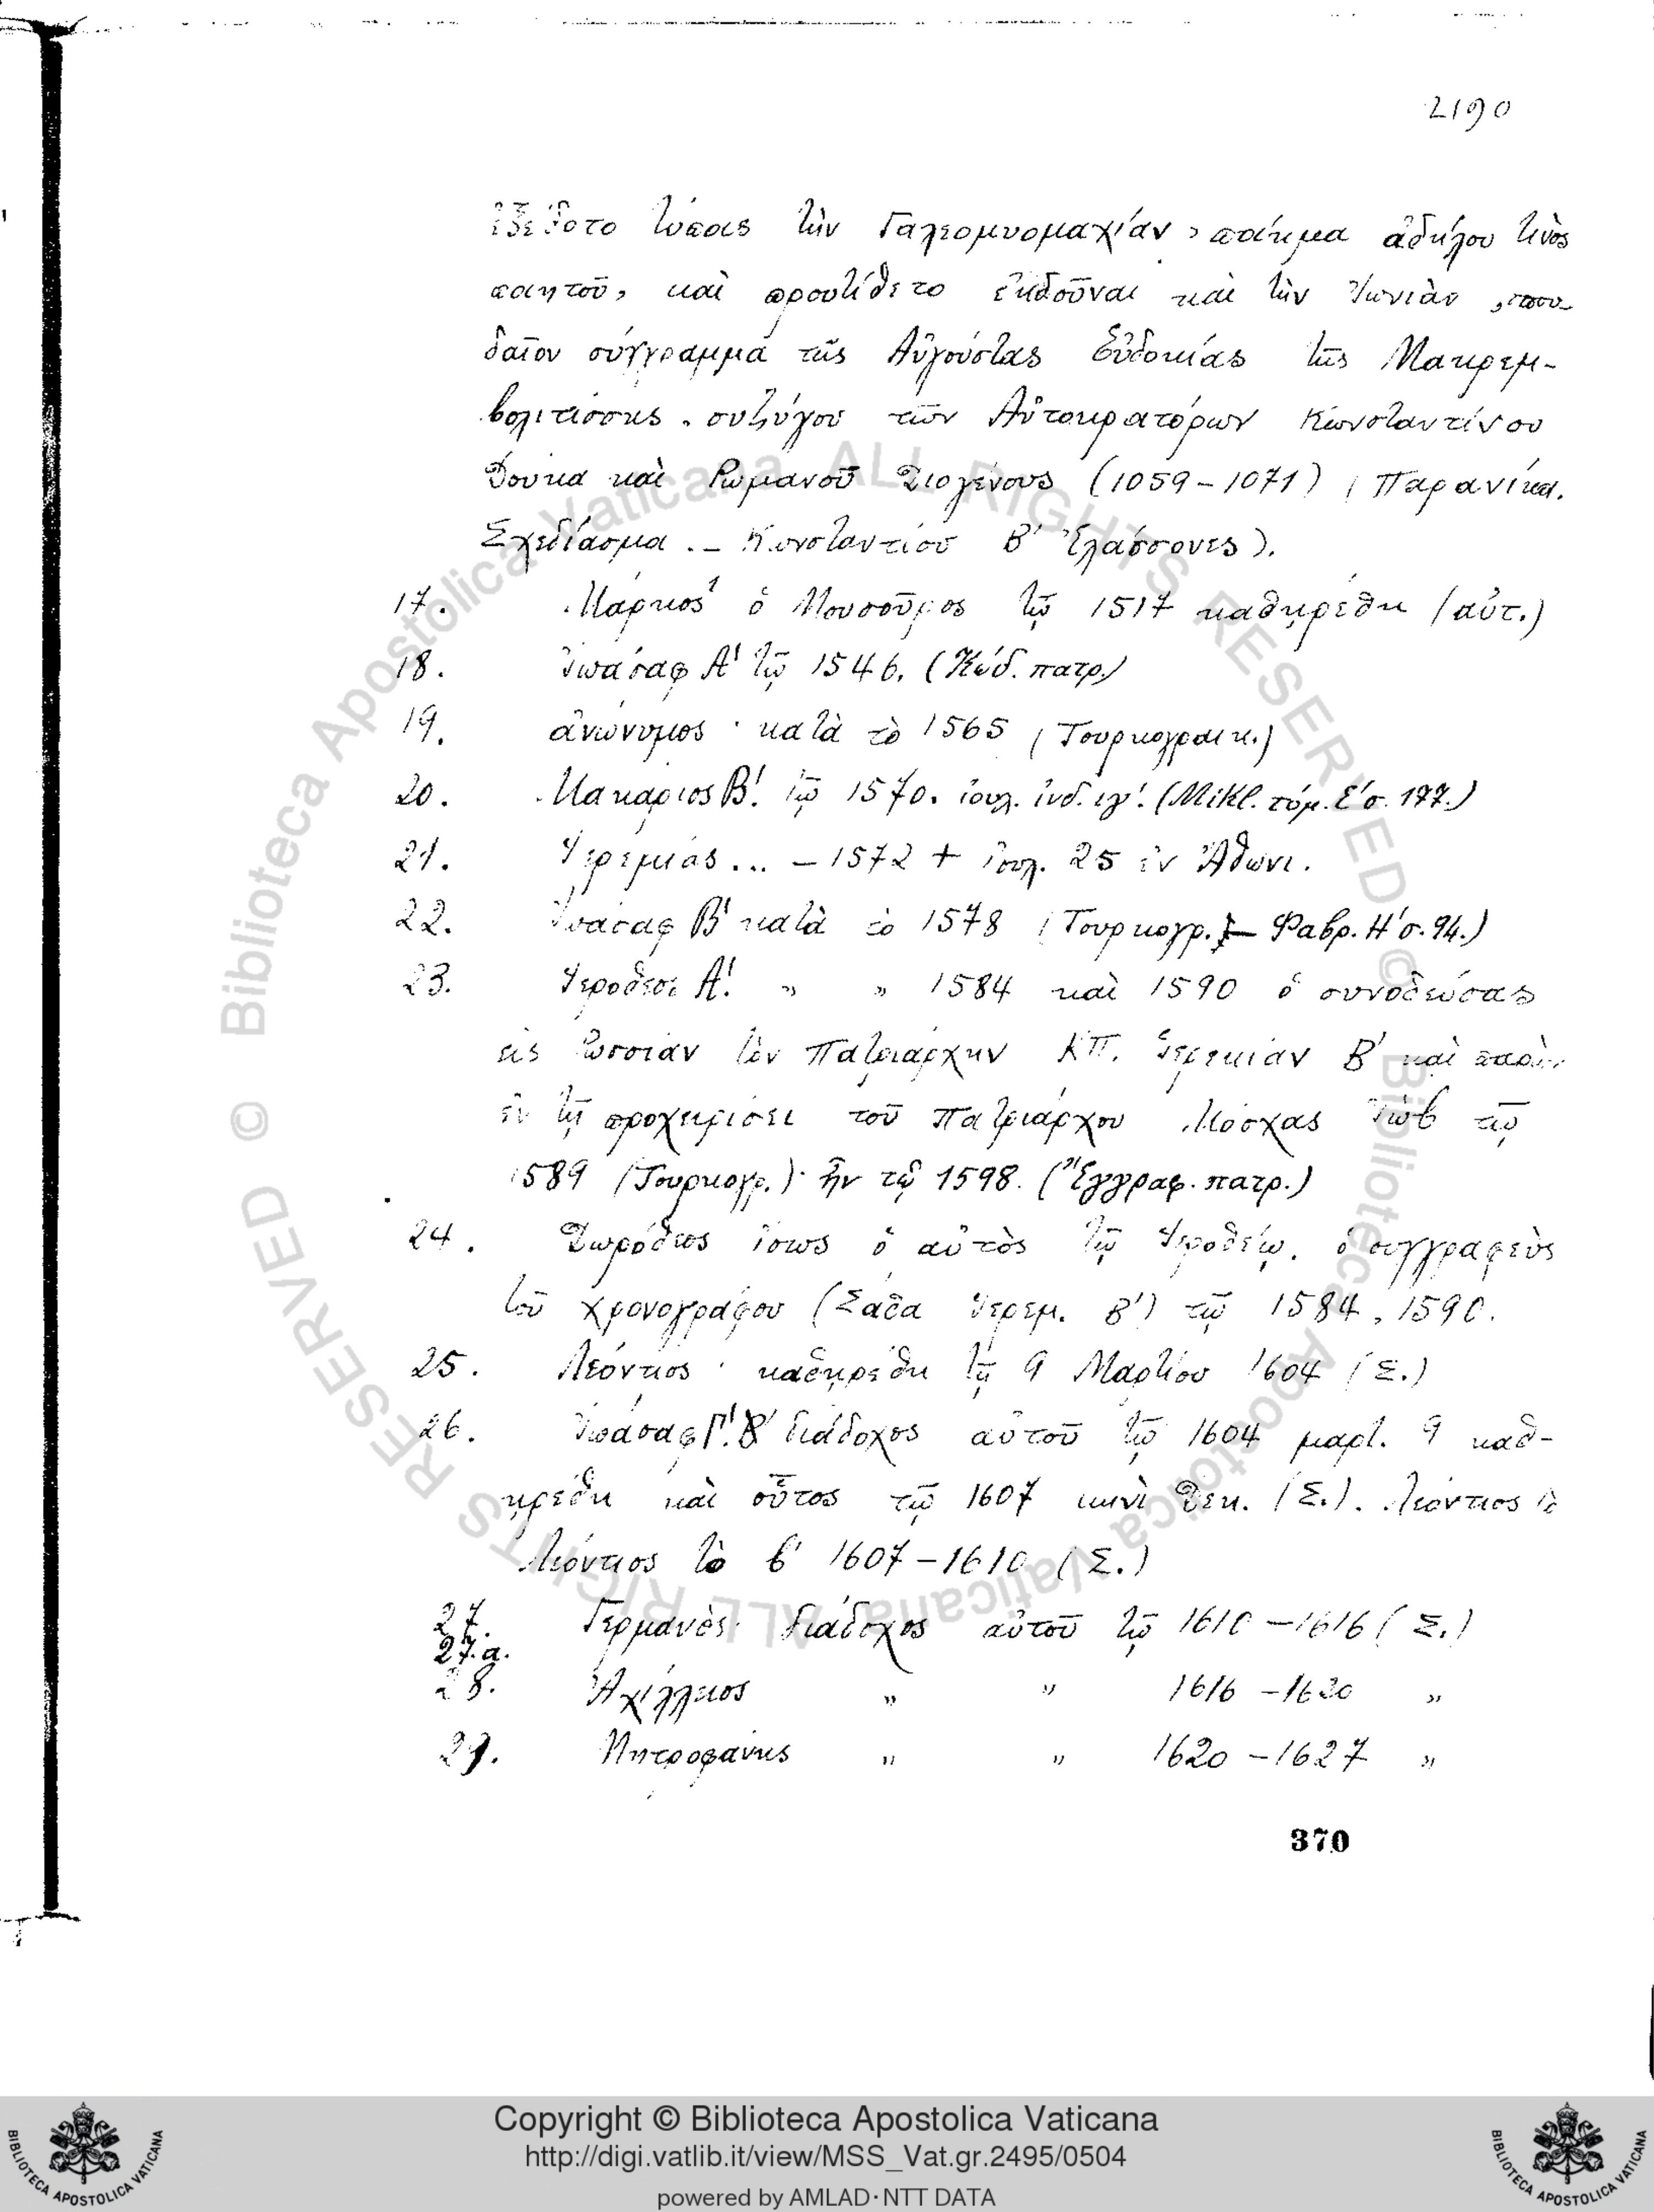 2190
ἐξέδοτο τύποις τὴν Γαλεομυομαχίαν, ποίημα ἀδήλου τινὸς
ποιητοῦ, καὶ προυτίθετο ἐκδοῦναι καὶ τὴν Ἰωνιὰν, σπου-
δαῖον σύγγραμμα τῆς Αὐγούστας Εὐδοκίας τῆς Μακρεμ-
βολιτίσσης, συζύγου τῶν Αὐτοκρατόρων Κωνσταντίνου
Δούκα καὶ Ῥωμανοῦ Διογένους (1059-1071) (Παρανίκα.
Σχεδίασμα. - Κωνσταντίου Β' Ἐλάσσονες).
17. Μάρκος ὁ Μουσοῦρος τῷ 1517 καθῃρέθη (αὐτ.)
18. Ἰωάσαφ Α' τῷ 1546. (Κώδ. πατρ.)
19. ἀνώνυμος· κατὰ τὸ 1565 (Τουρκογραικ.)
20. Μακάριος Β'. τῷ 1570. ἰουλ. ἰνδ. ιγ'. (Mikl. τόμ. Ε' σ. 177.)
21. Ἱερεμίας... - 1572 + Ἰουλ. 25 ἐν Ἄθωνι.
22. Ἰωάσαφ Β' κατὰ τὸ 1578 (Τουρκογρ. - Φαβρ. Η' σ. 94.)
23. Ἱερόθεος Α'. " " 1584 καὶ 1590 ὁ συνοδεύσας
εἰς Ῥωσσίαν τὸν Πατριάρχην ΚΠ. Ἱερεμίαν Β' καὶ παρὼν
ἐν τῇ προχειρίσει τοῦ Πατριάρχου Μόσχας Ἰὼβ τῷ
1589 (Τουρκογρ.)· ἦν τῷ 1598. (Ἔγγραφ. πατρ.)
24. Δωρόθεος ἴσως ὁ αὐτὸς τῷ Ἱεροθέῳ. ὁ συγγραφεὺς
τοῦ χρονογράφου (Σάθα Ἱερεμ. Β') τῷ 1584, 1590.
25. Λεόντιος· καθῃρέθη τῇ 9 Μαρτίου 1604 (Σ.)
26. Ἰωάσαφ Γ'. Β' διάδοχος αὐτοῦ τῷ 1604 μαρτ. 9 καθ-
ῃρέθη καὶ οὗτος τῷ 1607 μηνὶ Δεκ. (Σ.). Λεόντιος τὸ
Λεόντιος τὸ β' 1607-1610 (Σ.)
27. Γερμανὸς· διάδοχος αὐτοῦ τῷ 1610-1616 (Σ.)
27.α.
28. Ἀχίλλειος " " 1616-1620 "
29. Μητροφάνης " " 1620-1627 "
370
© Biblioteca Apostolica Vaticana ALL RIGHTS RESERVED
© Biblioteca Apostolica Vaticana ALL RIGHTS RESERVED
Copyright © Biblioteca Apostolica Vaticana
http://digi.vatlib.it/view/MSS_Vat.gr.2495/0504
powered by AMLAD·NTT DATA
BIBLIOTECA APOSTOLICA VATICANA
BIBLIOTECA APOSTOLICA VATICANA